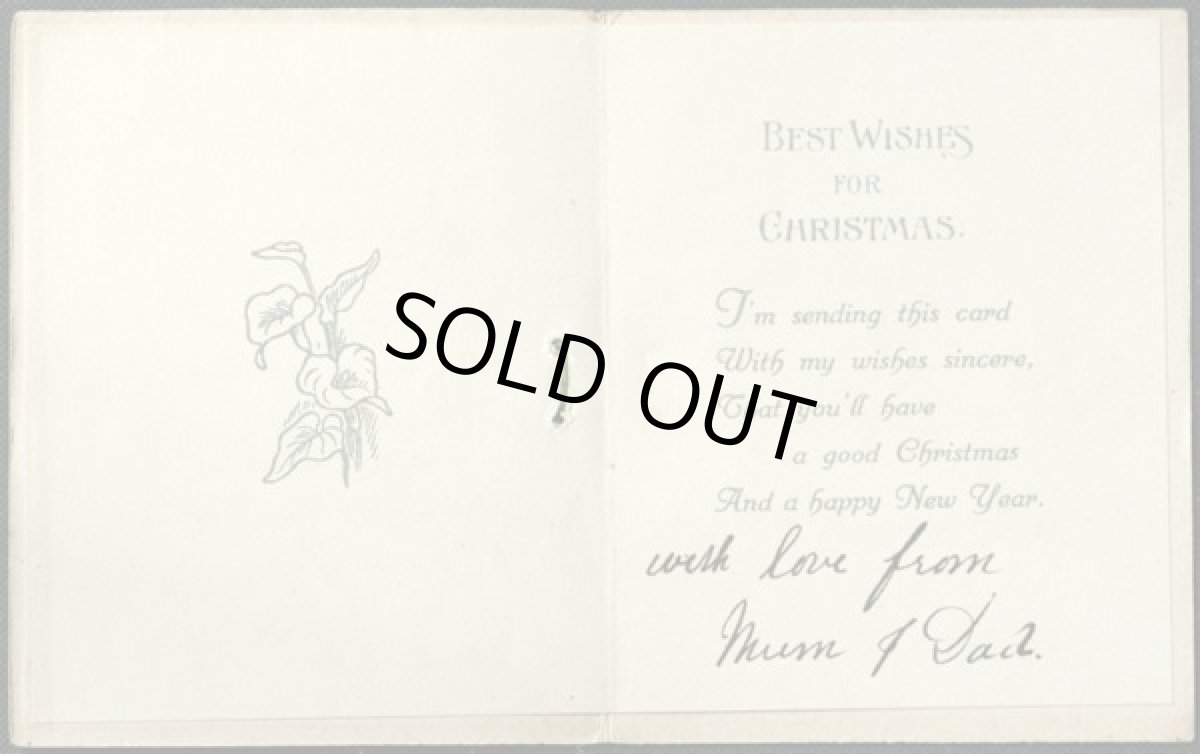 BEST WISHES
FOR
CHRISTMAS.
I'm sending this card
With my wishes sincere,
That you'll have
a good Christmas
And a happy New Year.
with love from
Mum & Dad.
SOLD OUT